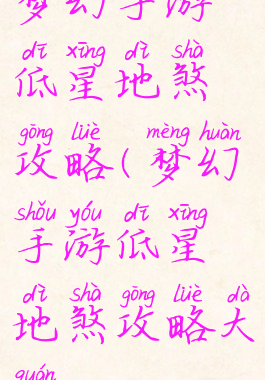 梦幻手游
dī xīng dì shà
低星地煞
gōng lüè mèng huàn
攻略(梦幻
shǒu yóu dī xīng
手游低星
dì shà gōng lüè dà
地煞攻略大
quán